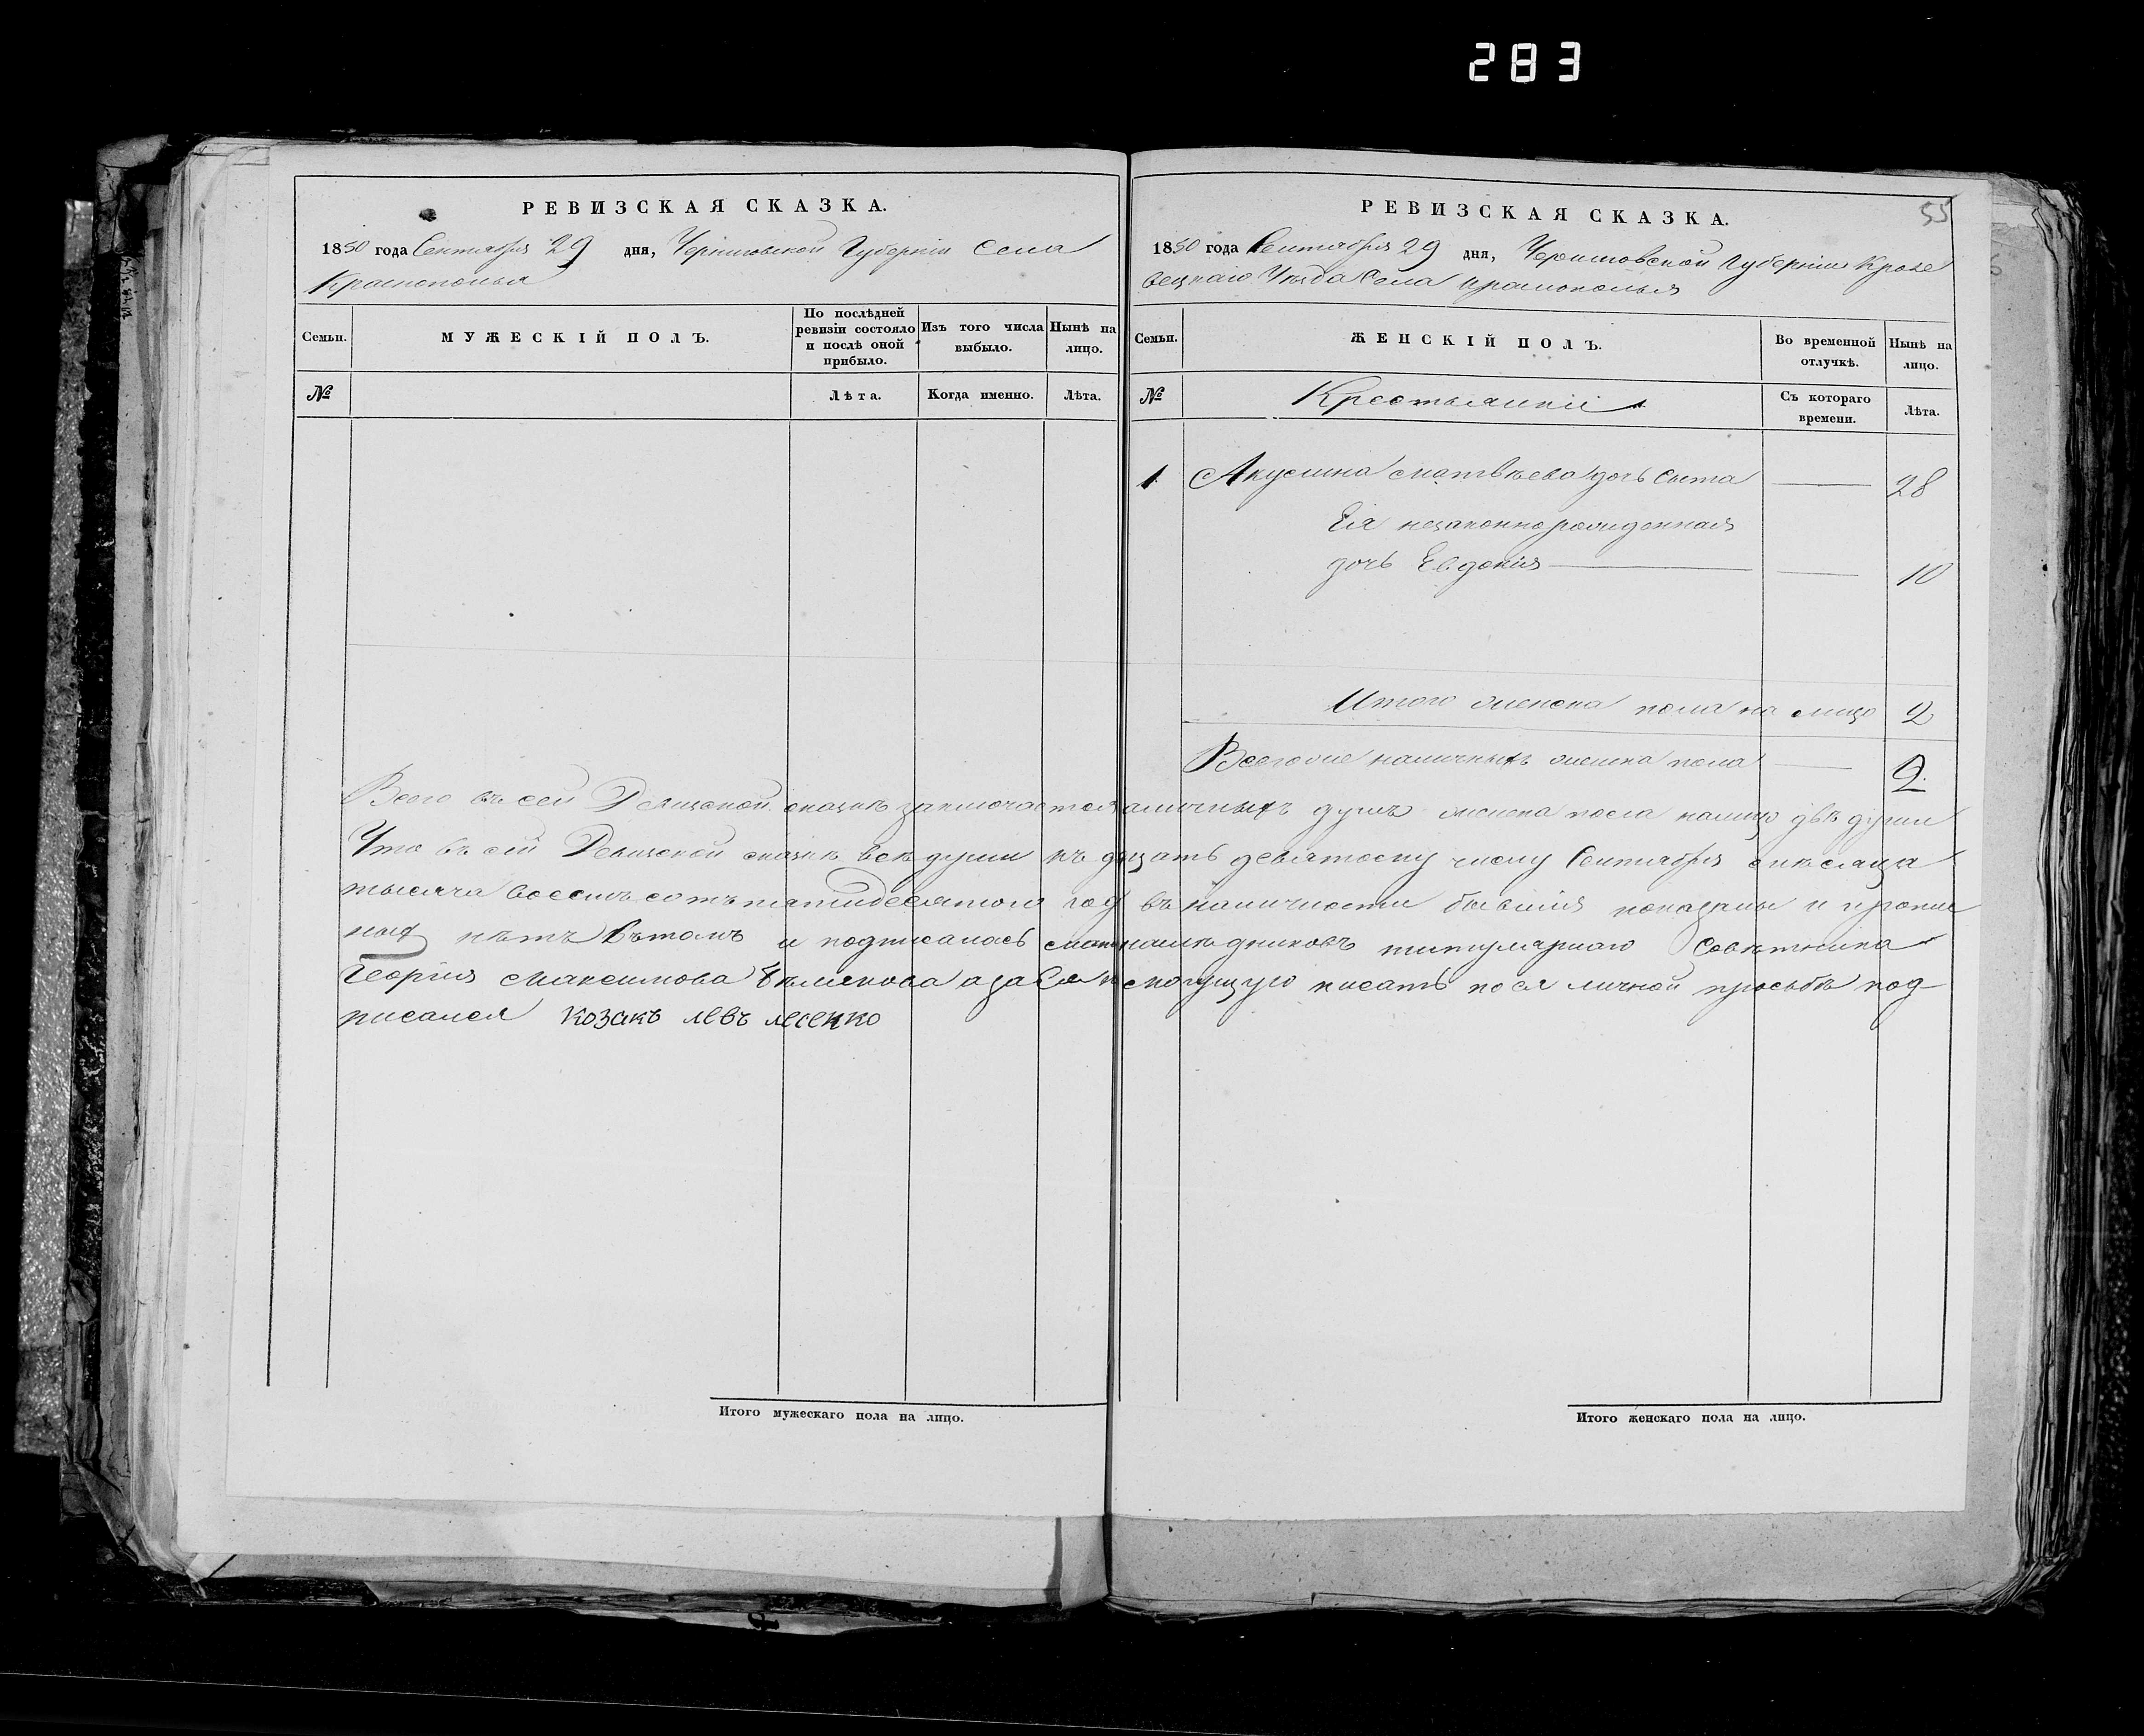 283
РЕВИЗСКАЯ СКАЗКА.
1850 года Сентября 29 дня, Черниговской Губерніи Села
Краснополья
Семьи.
МУЖЕСКІЙ ПОЛЪ.
По послѣдней ревизіи состояло и послѣ оной прибыло.
Изъ того числа выбыло.
Нынѣ на лицо.
№
Лѣта.
Когда именно.
Лѣта.
55
РЕВИЗСКАЯ СКАЗКА.
1850 года Сентября 29 дня, Черниговской Губерніи Кроле
вецкаго Уѣзда Села Краснополья
Семьи.
ЖЕНСКІЙ ПОЛЪ.
Во временной отлучкѣ.
Нынѣ на лицо.
№
Крестьянкіи
Съ котораго времени.
Лѣта.
1 Акулина Матвѣева дочь Сыта 28
Ея незаконнорожденная
дочь Евдокія 10
Итого женска пола на лицо 2
Всего же наличныхъ женска пола 2
Всего въ сей Ревизской сказкѣ заключается наличныхъ душъ женска пола налицо двѣ души
Что въ сей Ревизской сказкѣ всѣ души къ дцать девятому числу Сентября мѣсяца
тысяча восемь сотъ пятидесятого году въ наличности бывшія показаны и пропис
ныхъ нѣтъ вътомъ и подписалась титулярнаго Совѣтника
Георгія Максимова а за Ея немогущую писать поея личной просьбѣ под
писался козакъ левъ лесенко
Итого мужескаго пола на лицо.
Итого женскаго пола на лицо.